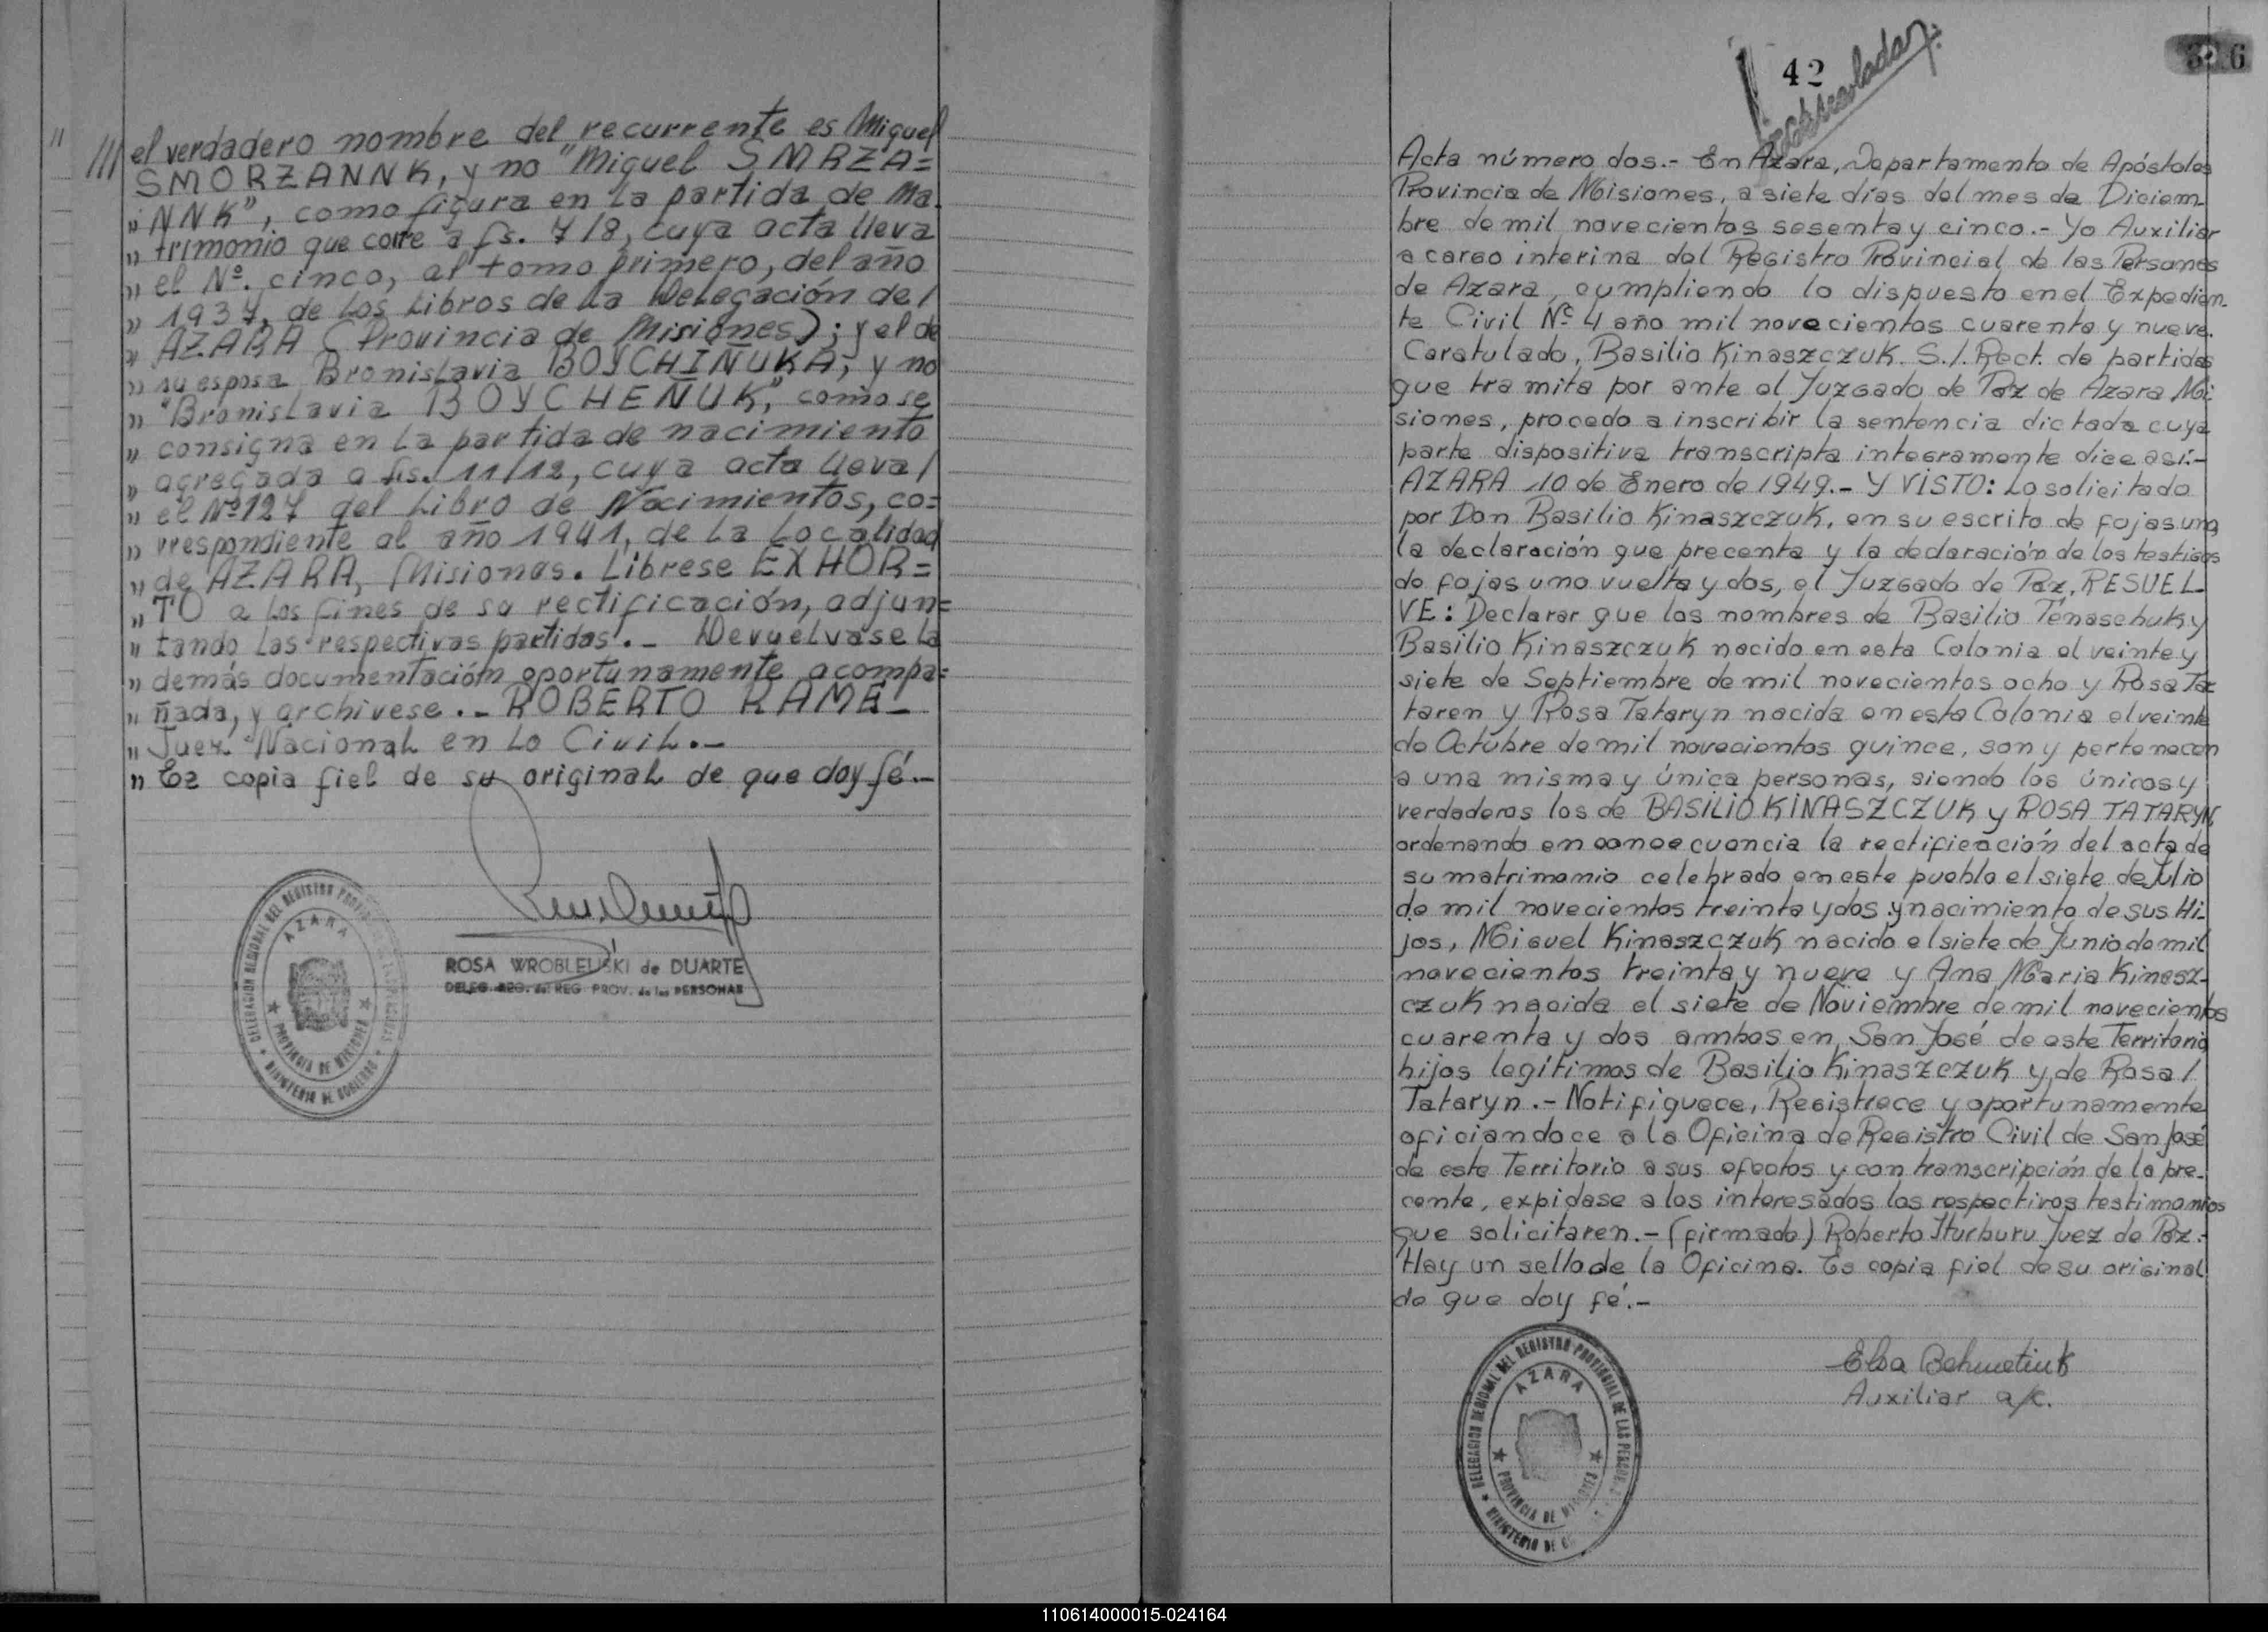 /// el verdadero nombre del recurrente es Miguel
SMORZANNK, y no "Miguel SMRZA=
" NNK", como figura en la partida de Ma
" trimonio que corre a fs. 7/8, cuya acta lleva
" el Nº. cinco, al tomo primero, del año
" 1937, de los Libros de la Delegación de/
" AZARA (Provincia de Misiones); y el de
" su esposa Bronislavia BOYCHIÑUKA, y no
" "Bronislavia BOYCHEÑUK", como se
" consigna en la partida de nacimiento
" agregada a fis. 11/12, cuya acta lleva/
" el Nº 127 del Libro de Nacimientos, co=
" rrespondiente al año 1941, de la Localidad
" de AZARA, Misiones. Librese EXHOR=
" TO a los fines de su rectificación, adjun=
" tando las respectivas partidas.- Devuelvase la
" demás documentación oportunamente acompa=
" ñada, y archivese.- ROBERTO RAME-
" Juez Nacional en lo Civil.-
" Es copia fiel de su original de que doy fé.-
DELEGACION REGIONAL DEL REGISTRO PROVINCIAL DE LAS PERSONAS
AZARA
PROVINCIA DE MISIONES
MINISTERIO DE GOBIERNO
ROSA WROBLEUSKI de DUARTE
DELEG. REG. del REG. PROV. de las PERSONAS
42
326
Acta número dos.- En Azara, Departamento de Apóstoles
Provincia de Misiones, a siete días del mes de Diciem-
bre de mil novecientos sesenta y cinco.- Yo Auxiliar
a cargo interina del Registro Provincial de las Personas
de Azara, cumpliendo lo dispuesto en el Expedien-
te Civil Nº 4 año mil novecientos cuarenta y nueve.
Caratulado, Basilio Kinaszczuk. S./. Rect. de partidas
que tramita por ante el Juzgado de Paz de Azara Mi-
siones, procedo a inscribir la sentencia dictada cuya
parte dispositiva transcripta integramente dice así:-
AZARA 10 de Enero de 1949.- Y VISTO: Lo solicitado
por Don Basilio Kinaszczuk, en su escrito de fojas uno,
la declaración que precenta y la declaración de los testigos
de fojas uno vuelta y dos, el Juzgado de Paz, RESUEL-
VE: Declarar que los nombres de Basilio Tenaschuk y
Basilio Kinaszczuk nacido en esta Colonia el veinte y
siete de Septiembre de mil novecientos ocho y Rosa Ta
taren y Rosa Tataryn nacida en esta Colonia el veinte
de Octubre de mil novecientos quince, son y pertenecen
a una misma y única personas, siendo los únicos y
verdaderos los de BASILIO KINASZCZUK y ROSA TATARYN,
ordenando en concecuencia la rectificación del acta de
su matrimonio celebrado en este pueblo el siete de Julio
de mil novecientos treinta y dos y nacimiento de sus Hi-
jos, Miguel Kinaszczuk nacido el siete de Junio de mil
novecientos treinta y nueve y Ana Maria Kinasz-
czuk nacida el siete de Noviembre de mil novecientos
cuarenta y dos ambos en San José de este Territorio
hijos legítimos de Basilio Kinaszczuk y de Rosa/
Tataryn.- Notifiquece, Registrece y oportunamente
oficiandoce a la Oficina de Registro Civil de San José
de este Territorio a sus efectos y con transcripción de la pre-
cente, expidase a los interesados los respectivos testimonios
que solicitaren.- (firmado) Roberto Iturburu Juez de Paz.-
Hay un sello de la Oficina. Es copia fiel de su original
de que doy fé.-
Auxiliar a/c.
DELEGACION REGIONAL DEL REGISTRO PROVINCIAL DE LAS
AZARA
PROVINCIA DE MISIONES
MINISTERIO DE
110614000015-024164